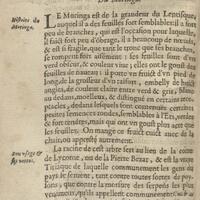 Du Moringa.
Histoire du
Moringa.
LE Moringa est de la grandeur du Lentisque,
auquel il a des feuilles fort semblables: il a
peu de branches, qui est l'occasion pour laquelle
il fait fort peu d'ombrage, il a beaucoup de nœuds,
& est si fragile, que tant le tronc que ses branches,
se rompent fort aisement: ses feuilles sont d'un
verd obscur, & couleur vive; elles ont le goust des
feuilles de naveau: il porte un fruict d'un pied de
long, de la grosseur d'un raifort, embelly de huict
angles, de couleur claire entre verd & gris,
dedans, moelleux, & distingué en certains
petites semences rondes, semblables à l'Ers,
& fort tendres, mais qui ont un goust plus
les feuilles. On mange ce fruict cuict avec la
chair, ou appresté autrement.
Son usage &
ses vertus.
La racine de cest arbre sert au lieu de la corne
de Lycorne, ou de la Pierre Bezar, & est la vraye
Tiriaque de laquelle communement les gens du
pays se servent, tant contre toutes sortes de poy-
sons, que contre la morsure des serpens les plus